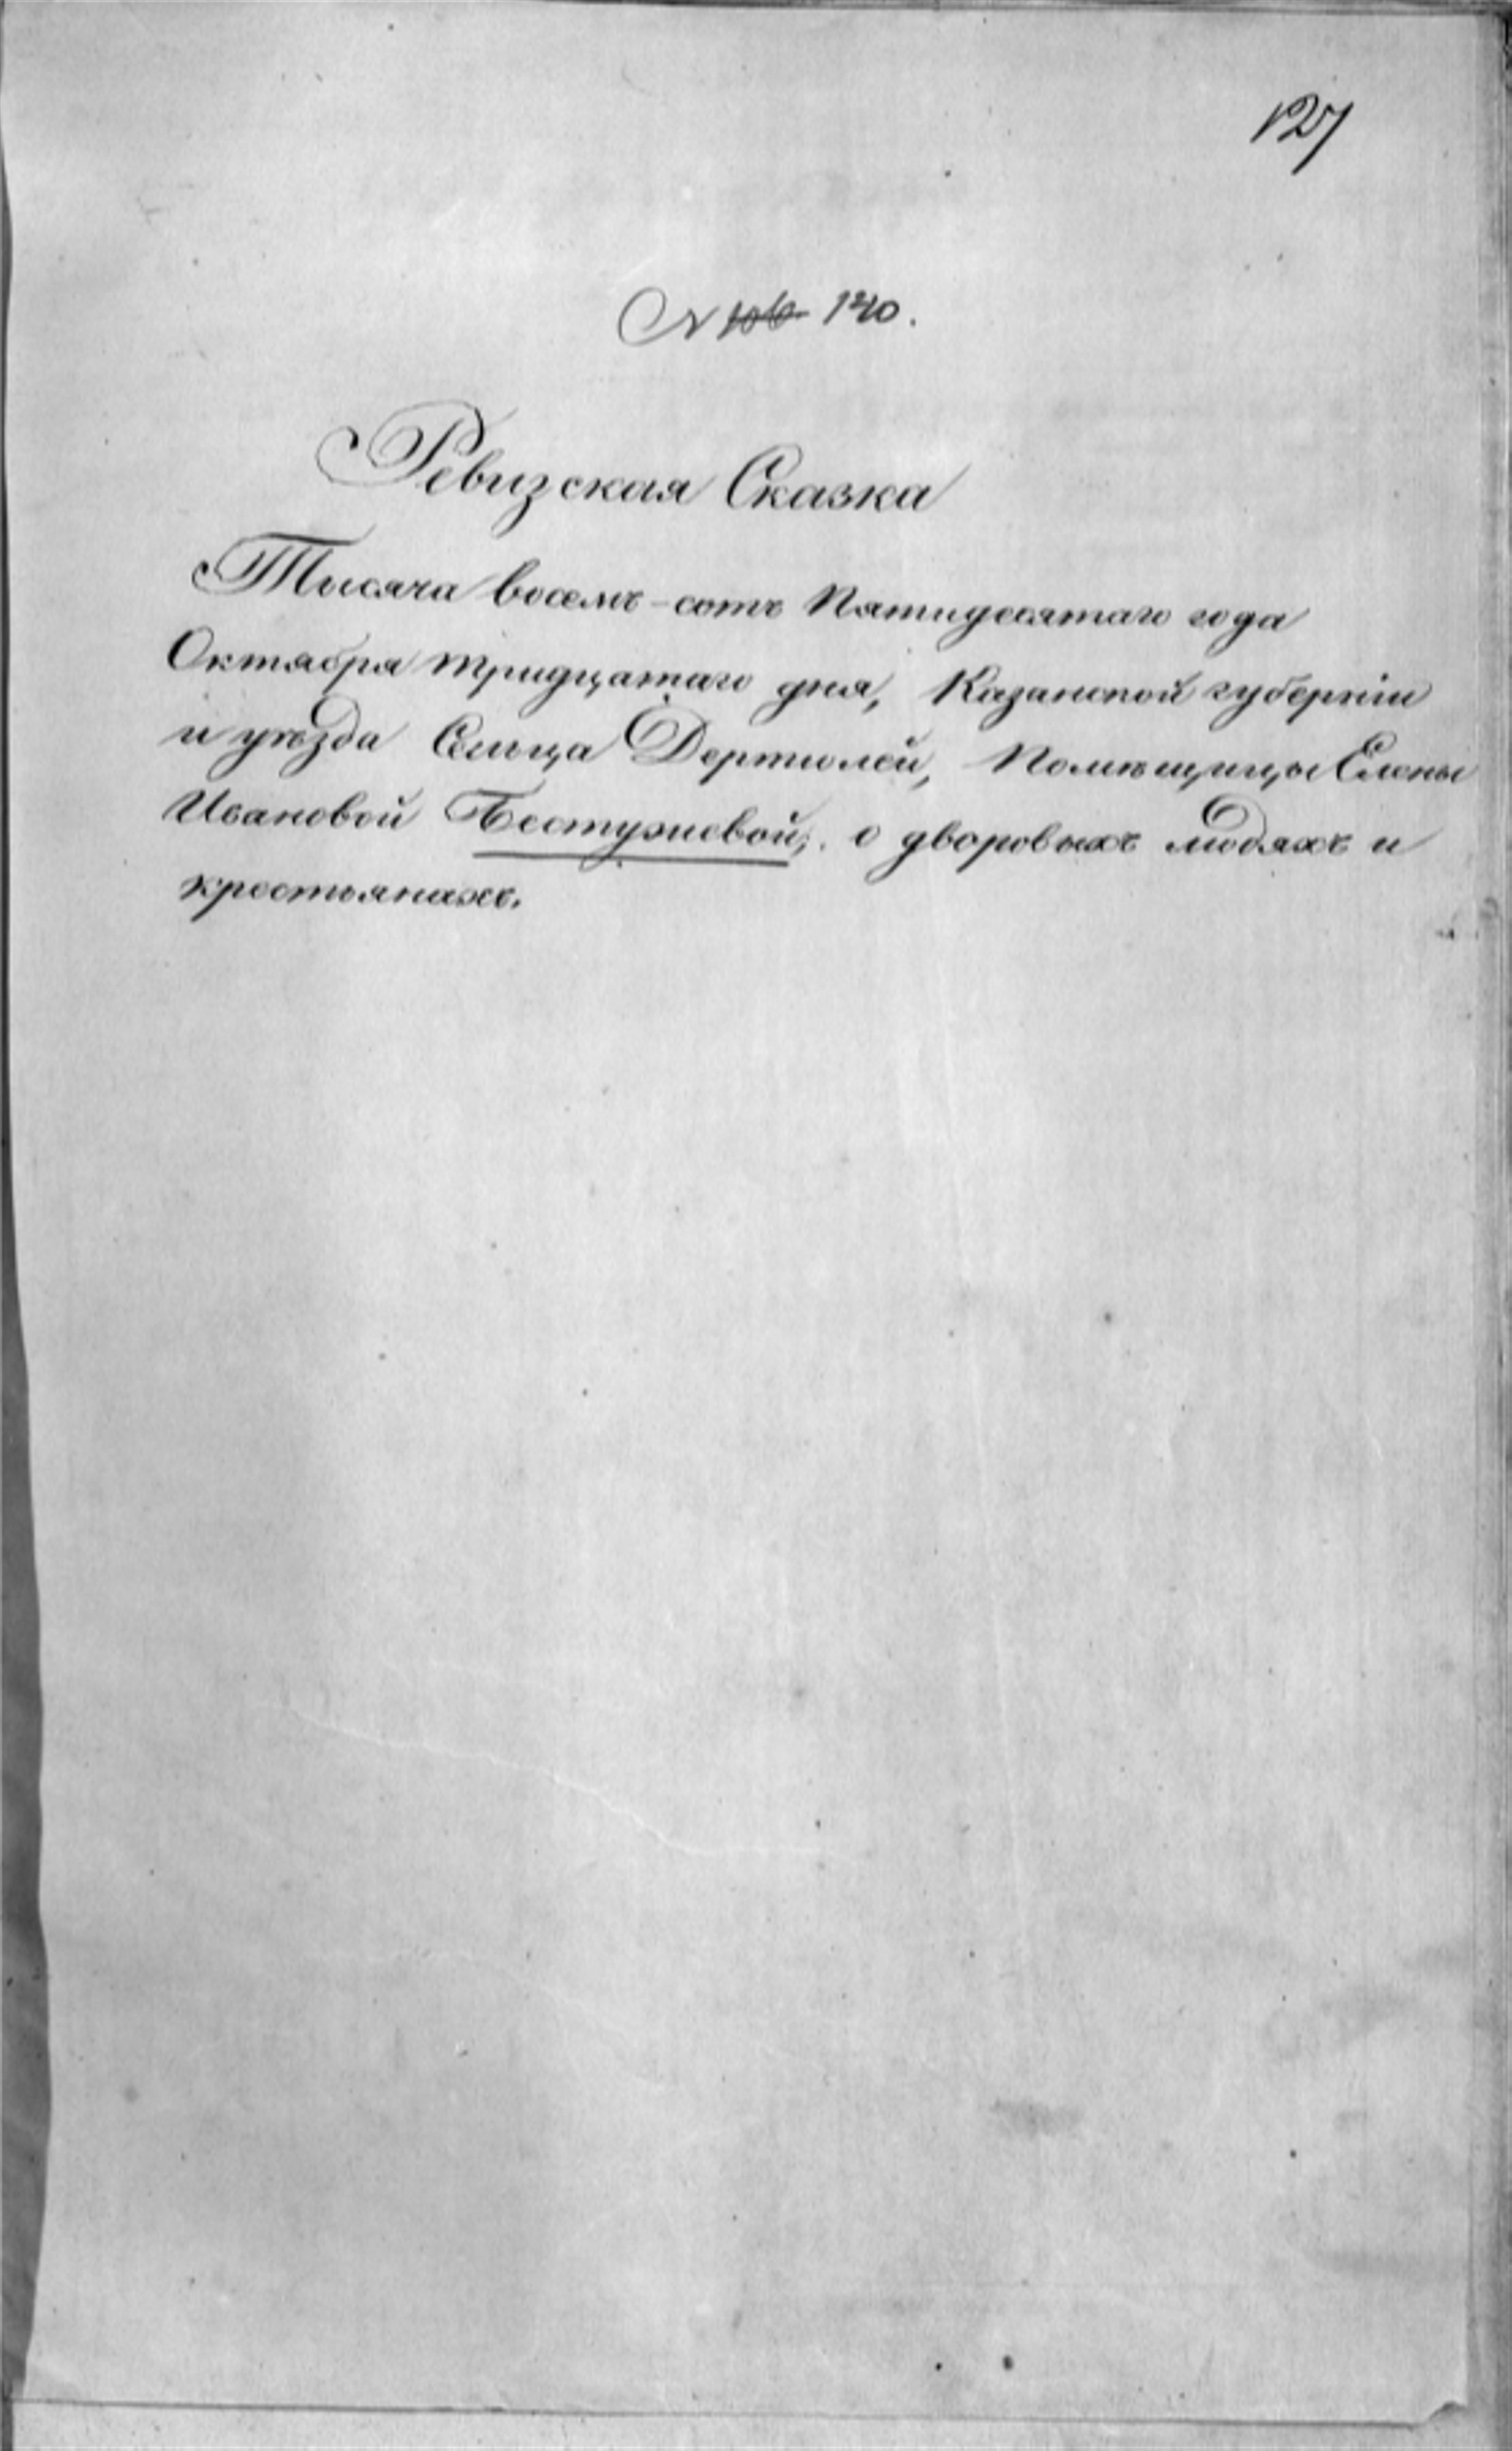 127
N 106 140.
Ревизская Сказка
Тысяча восемь-сотъ Пятидесятаго года
Октября тридцатаго дня, Казанской губерніи
и уѣзда Сельца Дертюлей, Помѣщицы Елены
Ивановой Бестужевой, о дворовыхъ людяхъ и
крестьянахъ.